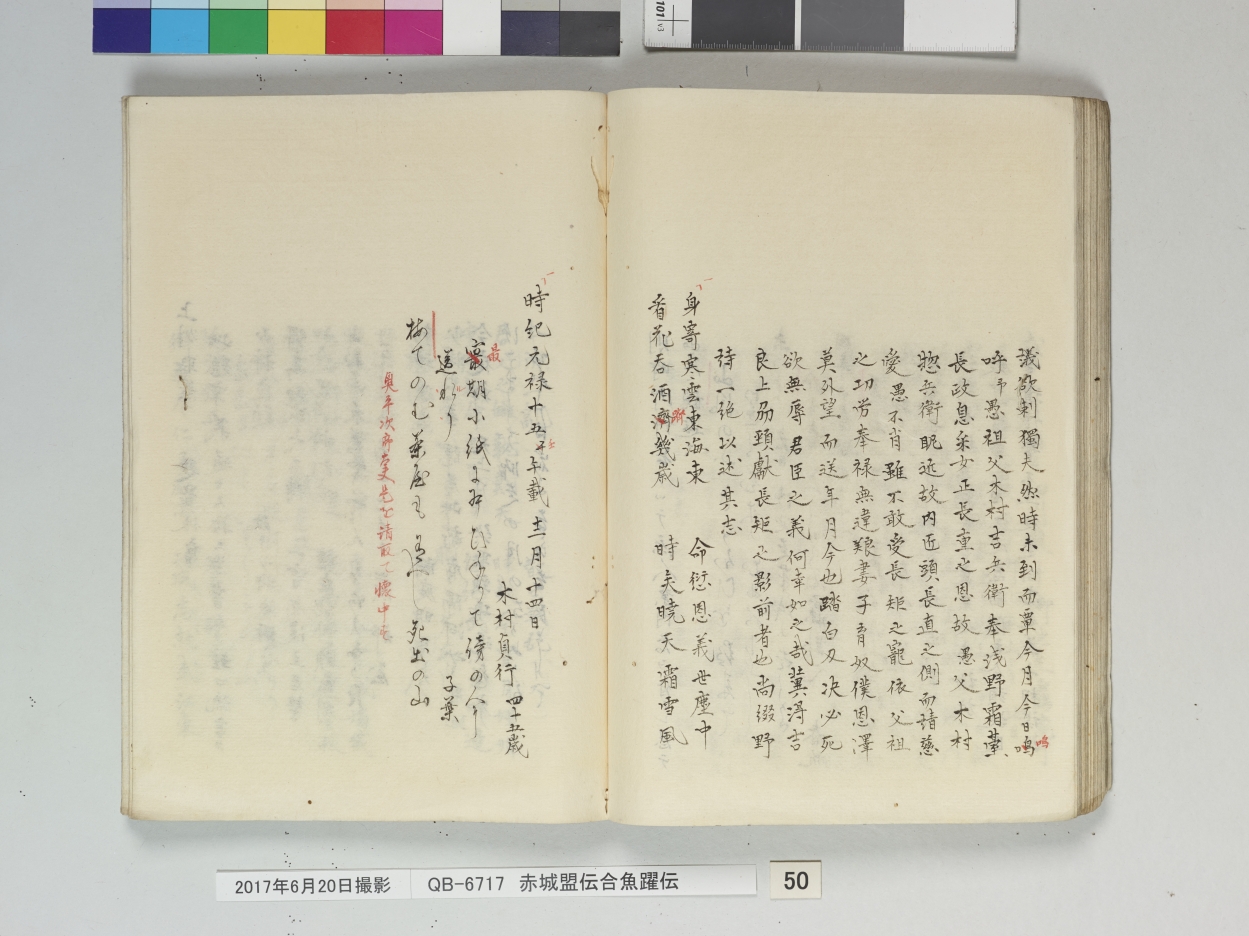 議欲刺獨夫然時未到而覃今月今日嗚
嗚
呼予愚祖父木村吉兵衛奉浅野霜臺
長政息采女正長重之恩故愚父木村
惣兵衛眤近故内匠頭長直之側而請慈
愛愚不肖雖不敢受長矩之寵依父祖
之功労奉禄無違艱妻子育奴僕恩澤
莫外望而送年月今也踏白刃決必死
欲無辱君臣之義何幸如之哉冀得吉
良上刕頸獻長矩之影前者也尚綴野
詩一絶以述其志
身寄寒雲東海東　命愆恩義世塵中
看花呑酒濟幾歳　時矣暁天霜雪風
躋
時紀元禄十五壬午載十二月十四日
木村貞行　四十五歳
最期小紙に
最
て傍の人
送れり
子葉
梅てのむ茶屋も 死出の山
奥平次郎大夫是を請取て懐中す
101 v3
2017年6月20日撮影
QB-6717 赤城盟伝合魚躍伝
50